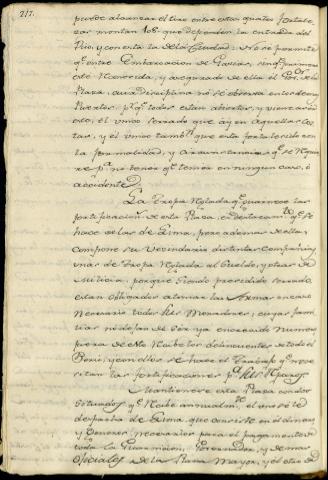 217.
puede alcanzar el tiro entre estas quatro fortale
zas montan 108. que defienden la entrada del
Rio, y con esta la de la Ciudad: No se permite
qe. entre Embarcacion de Guerra, sin qe. primero
esté Reconocida, y asegurado de ella el Gor. de la
Plaza, cuya disciplina no se observa en los demas
Puertos, pr. qe. todos estan abiertos, y viene a ser
este, el unico cerrado que ay en aquellas Cos
tas, y el unico tambn. que esta fortalecido con
la formalidad, y circunstancias qe. se Requie
re pa. no tener qe. temer en ningun caso, ò
accidente.
La Tropa Reglada qe. guarnece las
fortificacions. de esta Plaza, es destacamto. qe. se
hace de las de Lima, pero ademas de ellas,
compone su Vecindario distintas Compañias,
unas de Tropa Reglada al Sueldo, y otras de
Milicia, porque siendo Presidio cerrado
estan obligados a tomar las Armas en caso
Necesario todos sus Moradores, cuyas famí
lias no dejan de ser ya en crecido Numero
pues de alli Reciben los delinquentes de todo el
Perù, y con ellos se hace el trabajo qe. nece
sitan las fortificaciones pa. sus Reparos.
Mantienese esta Plaza con los
Situados qe. Recibe annualmte. el uno se le
despacha de Lima, que consiste en el dinero
y Generos necesarios para el pagamento de
toda la Guarnicion, Governador, y demas
Oficiales de la Plana Mayor, y el otro de